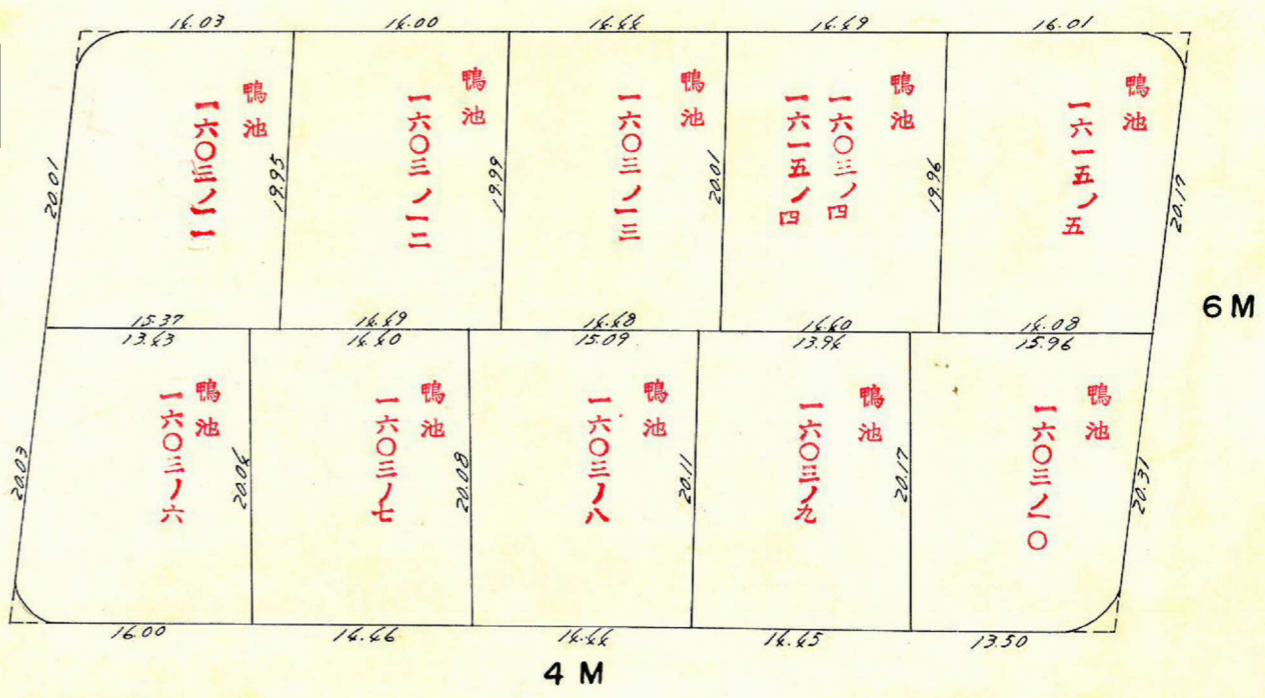 14.03
14.00
14.44
14.49
16.01
鴨池
一六〇三ノ一一
鴨池
一六〇三ノ一二
鴨池
一六〇三ノ一三
鴨池
一六〇三ノ四
一六一五ノ四
鴨池
一六一五ノ五
20.01
19.95
19.99
20.01
19.96
20.17
6M
15.37
14.49
14.48
14.40
14.08
13.43
14.40
15.09
13.94
15.96
鴨池
一六〇三ノ六
鴨池
一六〇三ノ七
鴨池
一六〇三ノ八
鴨池
一六〇三ノ九
鴨池
一六〇三ノ一〇
20.03
20.04
20.08
20.11
20.17
20.31
16.00
14.46
14.44
14.45
13.50
4 M